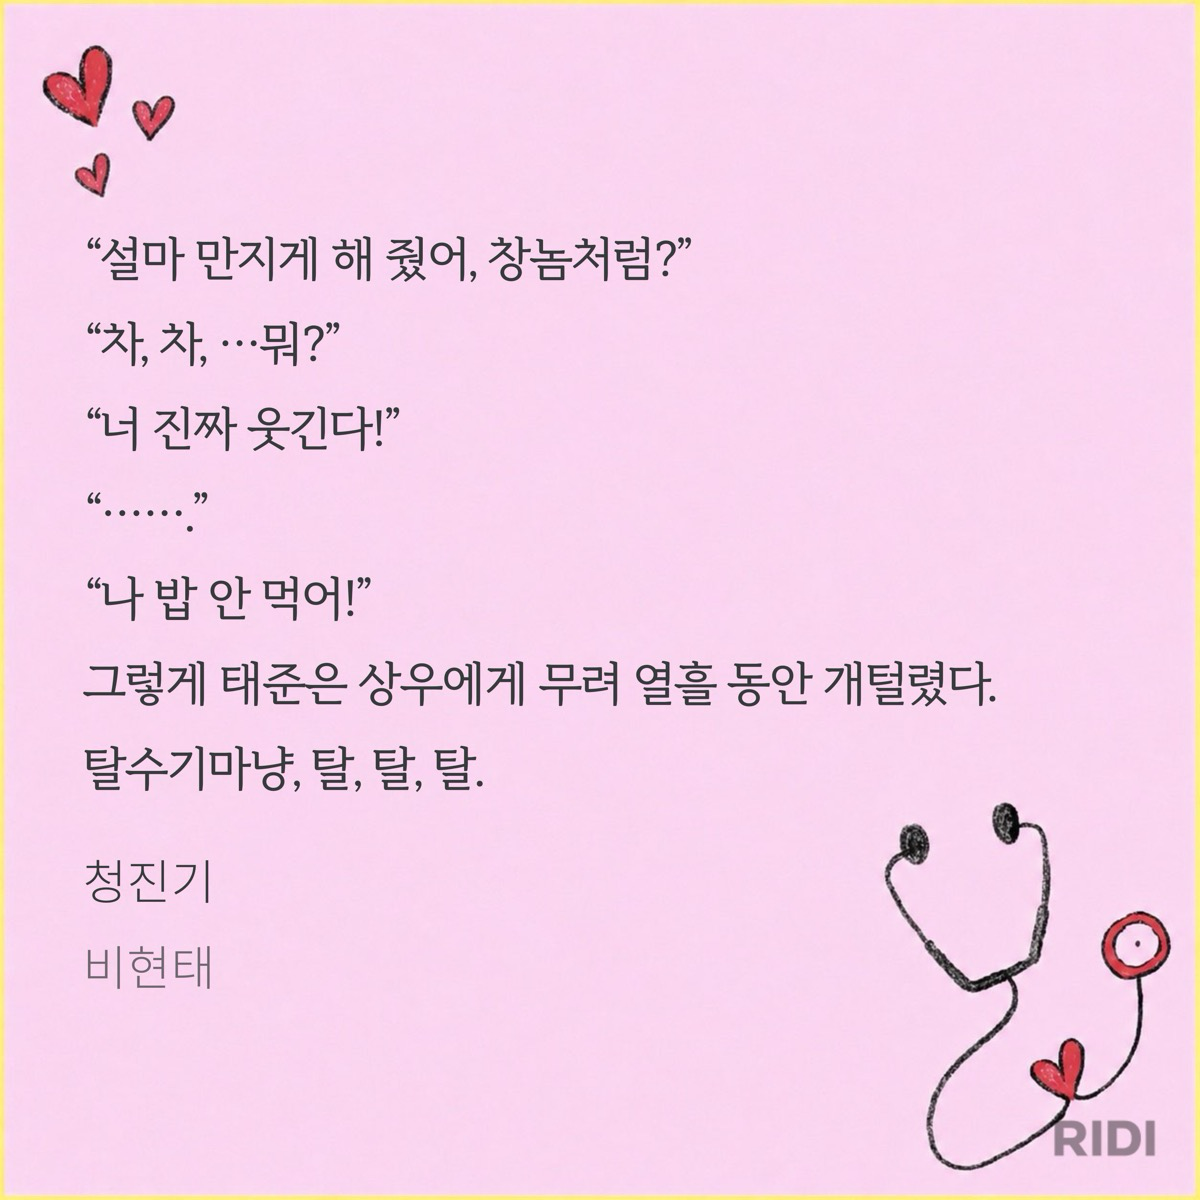 “설마 만지게 해 줬어, 창놈처럼?”
“차, 차, …뭐?”
“너 진짜 웃긴다!”
“…….”
“나 밥 안 먹어!”
그렇게 태준은 상우에게 무려 열흘 동안 개털렸다.
탈수기마냥, 탈, 탈, 탈.
청진기
비현태
RIDI